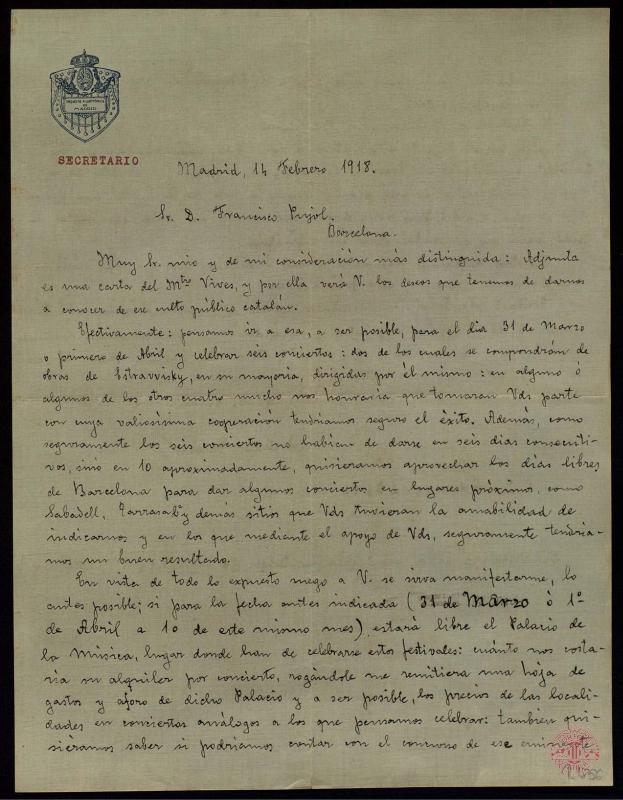 MADRID
SECRETARIO
Madrid, 14 Febrero 1918.
Sr. D. Francisco Pujol.
Barcelona.
Muy Sr. mio y de mi consideración más distinguida: Adjunta
es una carta del Mtro Vives, y por ella verá V. los deseos que tenemos de darnos
a conocer de ese culto público catalán.
Efectivamente: pensamos ir a esa, a ser posible, para el dia 31 de Marzo
o primero de Abril y celebrar seis conciertos: dos de los cuales se compondrán de
obras de Estravvisky, en su mayoria, dirigidas por él mismo: en alguno ó
algunos de los otros cuatro mucho nos honraria que tomaran Vds parte
con cuya valiosísima cooperación tendriamos seguro el éxito. Además, como
seguramente los seis conciertos no habian de darse en seis dias consecuti-
vos, sinó en 10 aproximadamente, quisieramos aprovechar los días libres
de Barcelona para dar algunos conciertos en lugares próximos, como
Sabadell, Tarrasa y demás sitios que Vds tuvieran la amabilidad de
indicarnos y en los que mediante el apoyo de Vds, seguramente tendria-
mos un buen resultado.
En vista de todo lo expuesto ruego a V. se sirva manifestarme, lo
antes posible; si para la fecha antes indicada (31 de Marzo ó 1º
de Abril a 10 de este mismo mes) estará libre el Palacio de
la Música, lugar donde han de celebrarse estos festivales: cuánto nos costa-
ria su alquiler por concierto, rogándole me remitiera una hoja de
gastos y aforo de dicho Palacio y a ser posible, los precios de las locali-
dades en conciertos análogos a los que pensamos celebrar: tambien qui-
siéramos saber si podriamos contar con el concurso de ese eminente